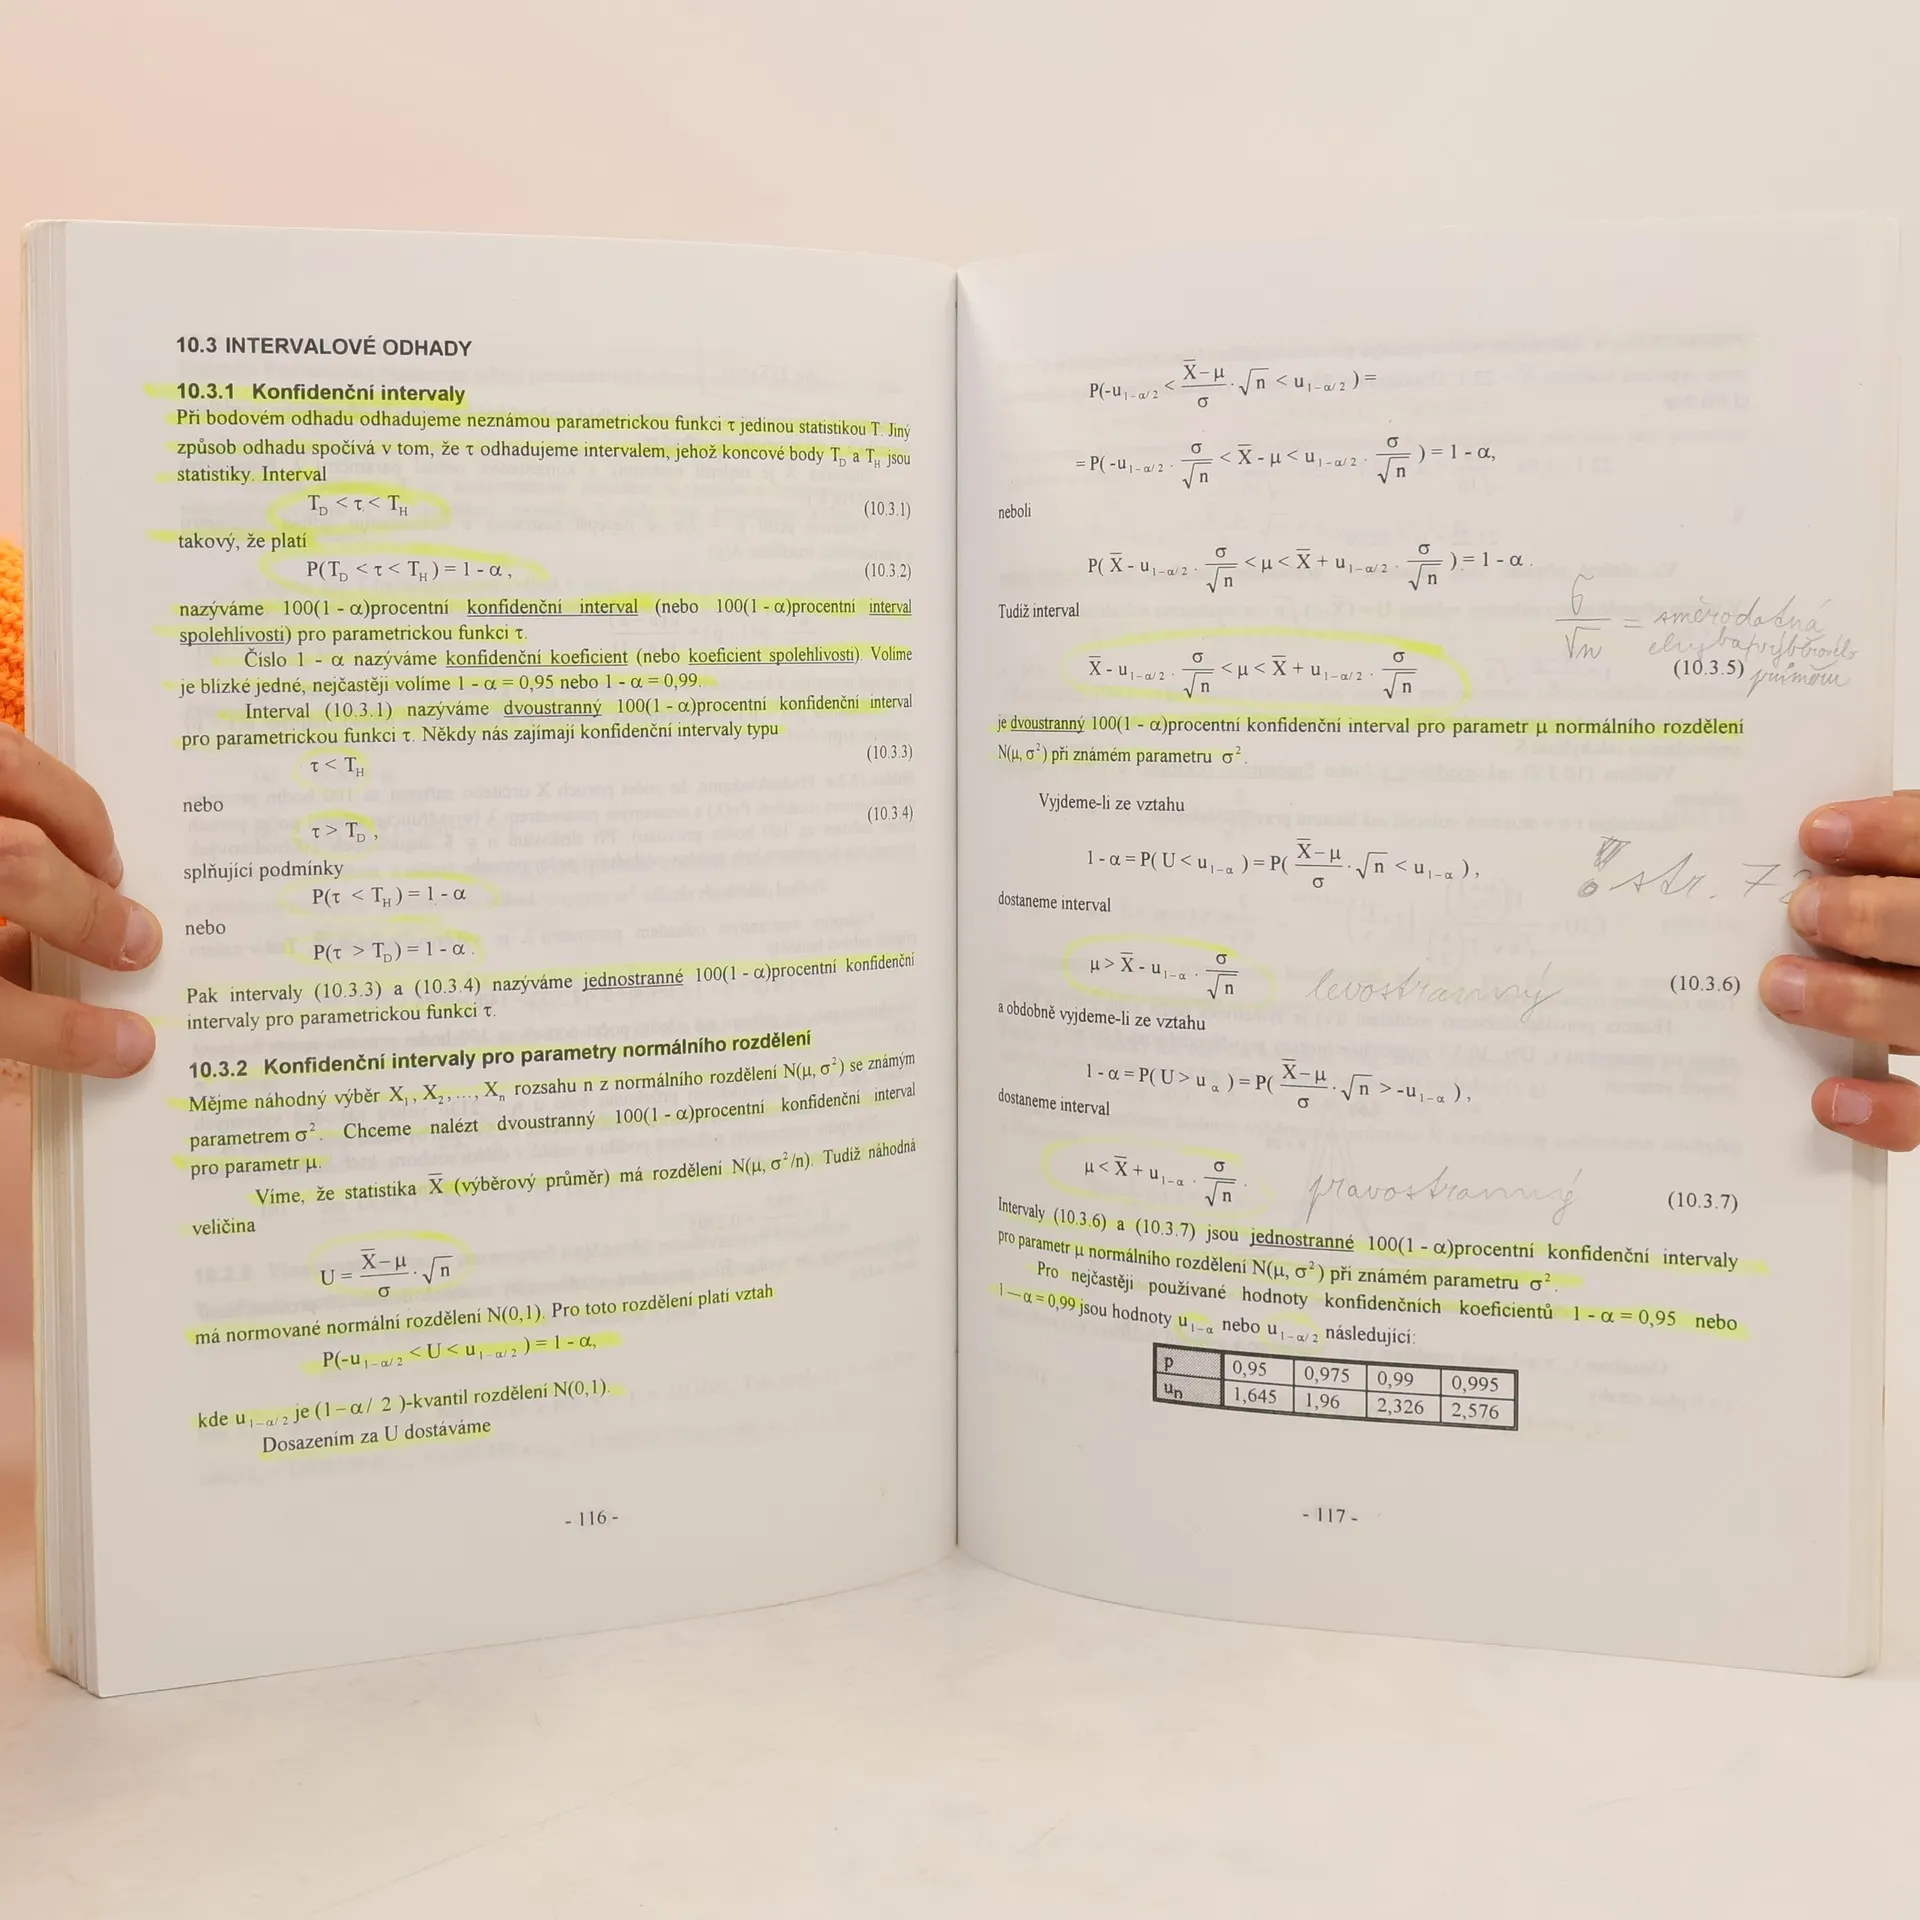 10.3 INTERVALOVÉ ODHADY
10.3.1 Konfidenční intervaly
Při bodovém odhadu odhadujeme neznámou parametrickou funkci τ jedinou statistikou T. Jiný
způsob odhadu spočívá v tom, že τ odhadujeme intervalem, jehož koncové body T_D a T_H jsou
statistiky. Interval
T_D < τ < T_H (10.3.1)
takový, že platí
P(T_D < τ < T_H) = 1 - α, (10.3.2)
nazýváme 100(1 - α)procentní konfidenční interval (nebo 100(1 - α)procentní interval
spolehlivosti) pro parametrickou funkci τ.
Číslo 1 - α nazýváme konfidenční koeficient (nebo koeficient spolehlivosti). Volíme
je blízké jedné, nejčastěji volíme 1 - α = 0,95 nebo 1 - α = 0,99.
Interval (10.3.1) nazýváme dvoustranný 100(1 - α)procentní konfidenční interval
pro parametrickou funkci τ. Někdy nás zajímají konfidenční intervaly typu
τ < T_H (10.3.3)
nebo
τ > T_D, (10.3.4)
splňující podmínky
P(τ < T_H) = 1 - α
nebo
P(τ > T_D) = 1 - α.
Pak intervaly (10.3.3) a (10.3.4) nazýváme jednostranné 100(1 - α)procentní konfidenční
intervaly pro parametrickou funkci τ.
10.3.2 Konfidenční intervaly pro parametry normálního rozdělení
Mějme náhodný výběr X₁, X₂, ..., Xₙ rozsahu n z normálního rozdělení N(μ, σ²) se známým
parametrem σ². Chceme nalézt dvoustranný 100(1 - α)procentní konfidenční interval
pro parametr μ.
Víme, že statistika X̅ (výběrový průměr) má rozdělení N(μ, σ²/n). Tudíž náhodná
veličina
U = (X̅ − μ)/σ · √n
má normované normální rozdělení N(0,1). Pro toto rozdělení platí vztah
P(-u_{1-α/2} < U < u_{1-α/2}) = 1 - α,
kde u_{1-α/2} je (1 − α/ 2 )-kvantil rozdělení N(0,1).
Dosazením za U dostáváme
- 116 -
P(-u_{1-α/2} < (X̅ − μ)/σ · √n < u_{1-α/2}) =
= P(-u_{1-α/2} · σ/√n < X̅ - μ < u_{1-α/2} · σ/√n) = 1 - α,
neboli
P( X̅ - u_{1-α/2} · σ/√n < μ < X̅ + u_{1-α/2} · σ/√n) = 1 - α.
Tudíž interval
σ/√n = směrodatná
chyba výběrového
průměru
X̅ - u_{1-α/2} · σ/√n < μ < X̅ + u_{1-α/2} · σ/√n (10.3.5)
je dvoustranný 100(1 - α)procentní konfidenční interval pro parametr μ normálního rozdělení
N(μ, σ²) při známém parametru σ².
Vyjdeme-li ze vztahu
1 - α = P( U < u_{1-α} ) = P( (X̅ − μ)/σ · √n < u_{1-α} ),
! str. 72
dostaneme interval
μ > X̅ - u_{1-α} · σ/√n levostranný (10.3.6)
a obdobně vyjdeme-li ze vztahu
1 - α = P( U > u_α ) = P( (X̅ − μ)/σ · √n > -u_{1-α} ),
dostaneme interval
μ < X̅ + u_{1-α} · σ/√n. pravostranný (10.3.7)
Intervaly (10.3.6) a (10.3.7) jsou jednostranné 100(1 - α)procentní konfidenční intervaly
pro parametr μ normálního rozdělení N(μ, σ²) při známém parametru σ².
Pro nejčastěji používané hodnoty konfidenčních koeficientů 1 - α = 0,95 nebo
1 − α = 0,99 jsou hodnoty u_{1-α} nebo u_{1-α/2} následující:
p 0,95 0,975 0,99 0,995
u_p 1,645 1,96 2,326 2,576
- 117 -